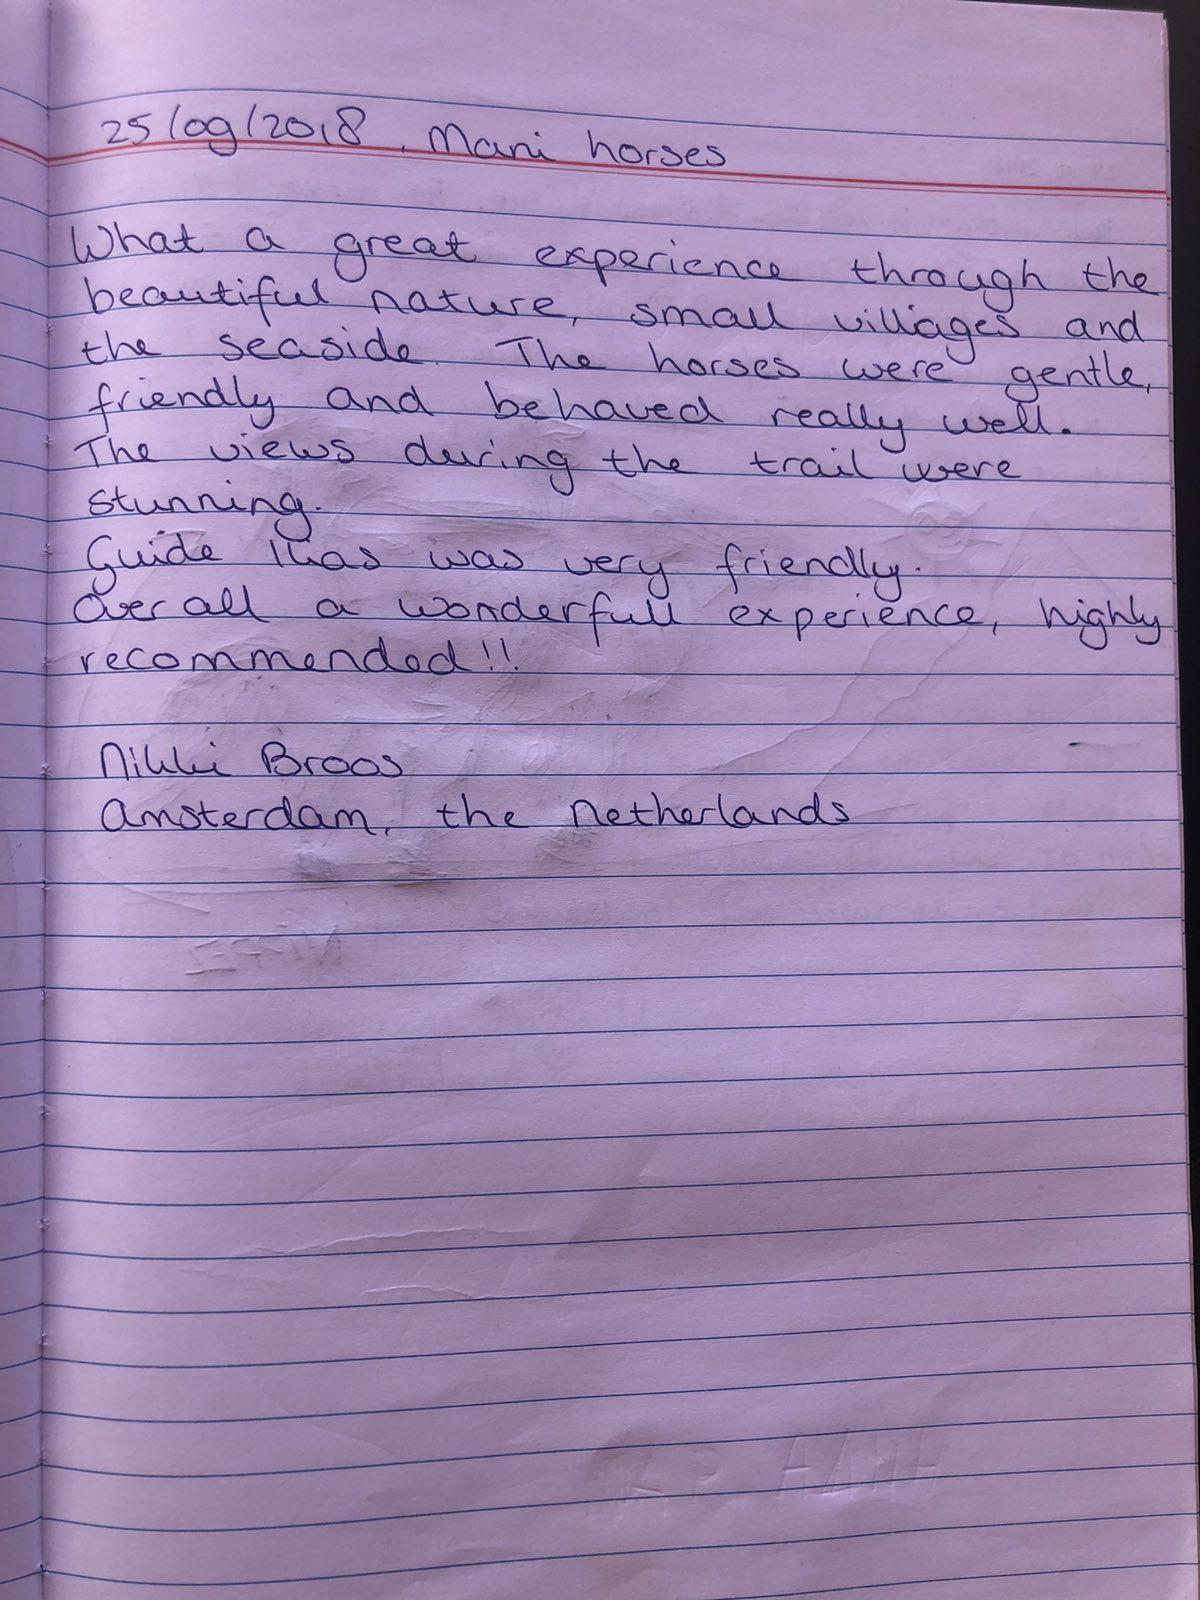 25/09/2018, Mani horses
What a great experience through the
beautiful nature, small villages and
the seaside. The horses were gentle,
friendly and behaved really well.
The views during the trail were
stunning.
Guide Ilias was very friendly.
Over all a wonderfull experience, highly
recommended!!
Nikki Broos
Amsterdam, the Netherlands